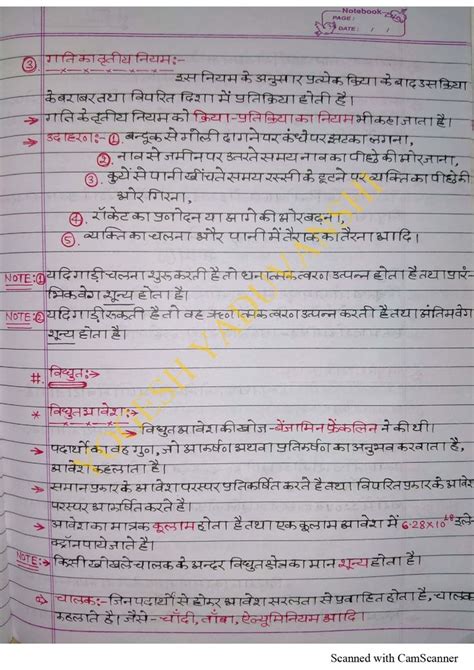 Notebook
PAGE:
DATE: / /
③ गति का तृतीय नियम:-
इस नियम के अनुसार प्रत्येक क्रिया के बाद उस क्रिया
के बराबर तथा विपरित दिशा में प्रतिक्रिया होती है।
→ गति के तृतीय नियम को क्रिया-प्रतिक्रिया का नियम भी कहा जाता है।
→ उदाहरण:- ①. बन्दूक से गोली दागने पर कंधे पर झटका लगना,
②. नाव से जमीन पर उतरते समय नाव का पीछे की ओर जाना,
③. कुये से पानी खींचते समय रस्सी के टूटने पर व्यक्ति का पीछे की
ओर गिरना,
④. रॉकेट का प्रणोदन या आगे की ओर बढ़ना,
⑤. व्यक्ति का चलना और पानी में तैराक का तैरना आदि।
NOTE:→① यदि गाड़ी चलना शुरू करती है तो धनात्मक त्वरण उत्पन्न होता है तथा प्रारं-
भिक वेग शून्य होता है।
NOTE:→② यदि गाड़ी रुकती है तो वह ऋणात्मक त्वरण उत्पन्न करती है तथा अंतिम वेग
शून्य होता है।
#. विधुत:→
* विधुत आवेश:→
→ विधुत आवेश की खोज - बेंजामिन फ्रेंकलिन ने की थी।
→ पदार्थों का वह गुण, जो आकर्षण अथवा प्रतिकर्षण का अनुभव करवाता है,
आवेश कहलाता है।
→ समान प्रकार के आवेश परस्पर प्रतिकर्षित करते है तथा विपरित प्रकार के आवेश
परस्पर आकर्षित करते है।
→ आवेश का मात्रक कूलाम होता है तथा एक कूलाम आवेश में 6.28×10¹⁸ इले-
क्ट्रॉन पाये जाते है।
NOTE:→ किसी खोखले चालक के अन्दर विधुत क्षेत्र का मान शून्य होता है।
चालक:- जिन पदार्थों से होकर आवेश सरलता से प्रवाहित होता है, चालक
कहलाते है। जैसे- चाँदी, ताँबा, ऐल्युमिनियम आदि।
YOGESH YADUVANSHI
Scanned with CamScanner